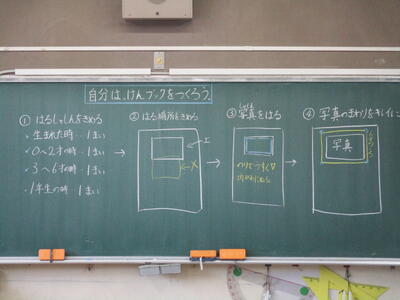 自分はっけんブックをつくろう。
① はるしゃしんをきめる
・生まれた時…1まい
・0〜2才の時…1まい
・3〜6才の時…1まい
・1年生の時…1まい
② はる場所をきめる
③ 写真をはる
しゃしん
のりでうすく
④ 写真のまわりをキレイに
写真